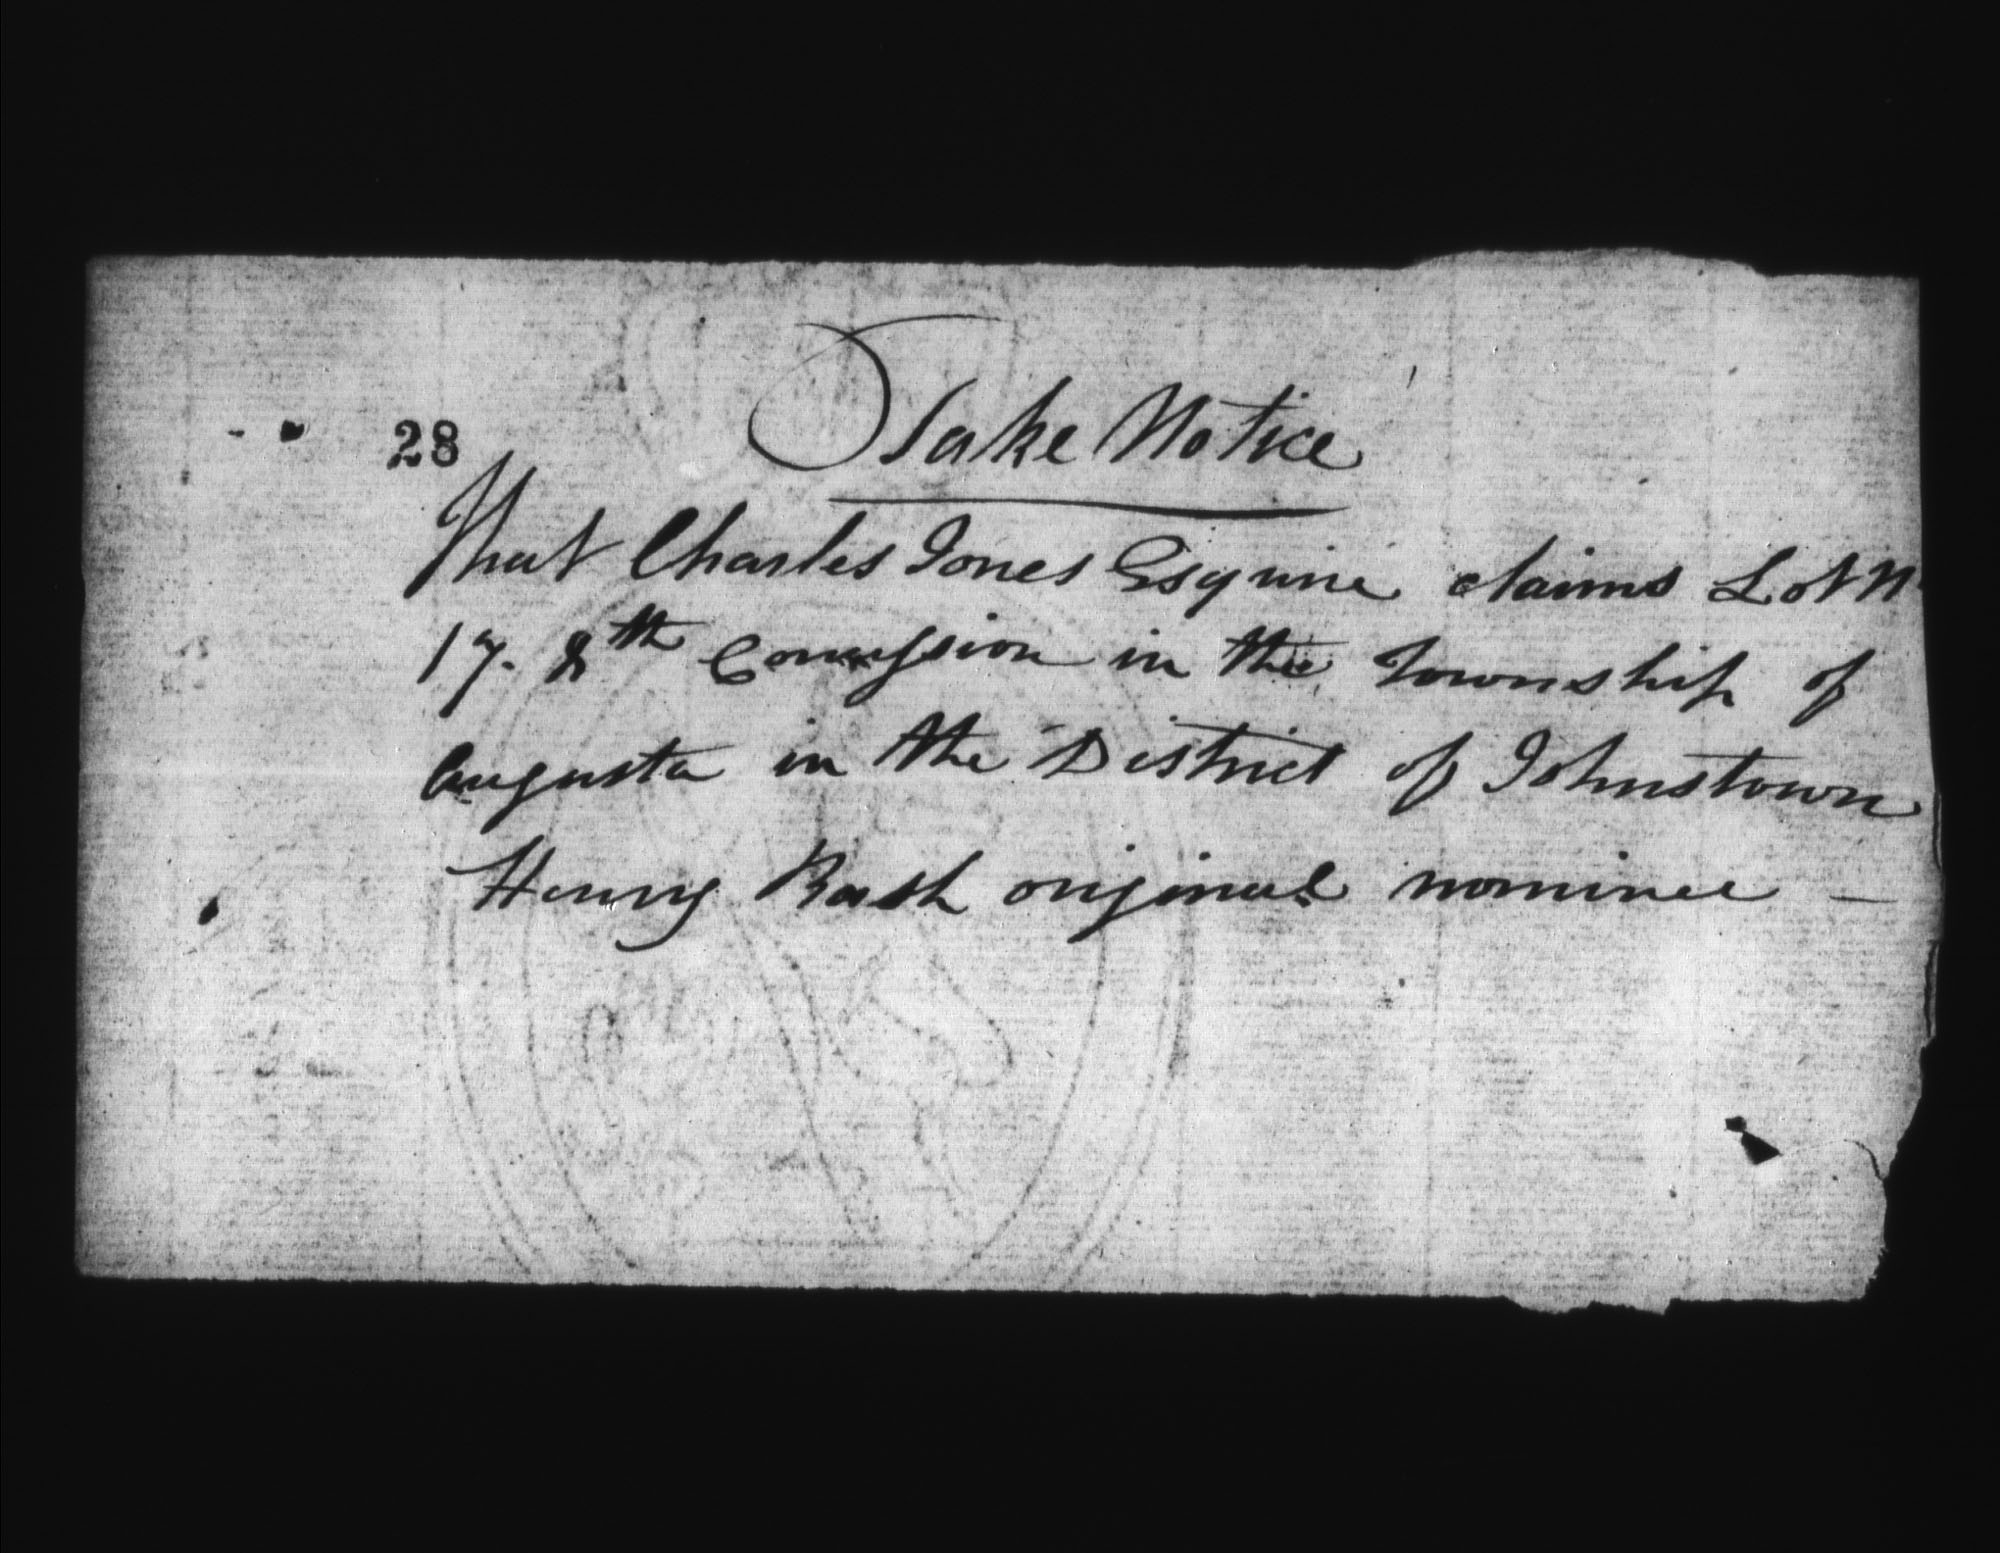 28
Take Notice
That Charles Jones Esquire claims Lot N
17. 8th Concession in the Township of
Augusta in the District of Johnstown
Henry Bash original nominee —